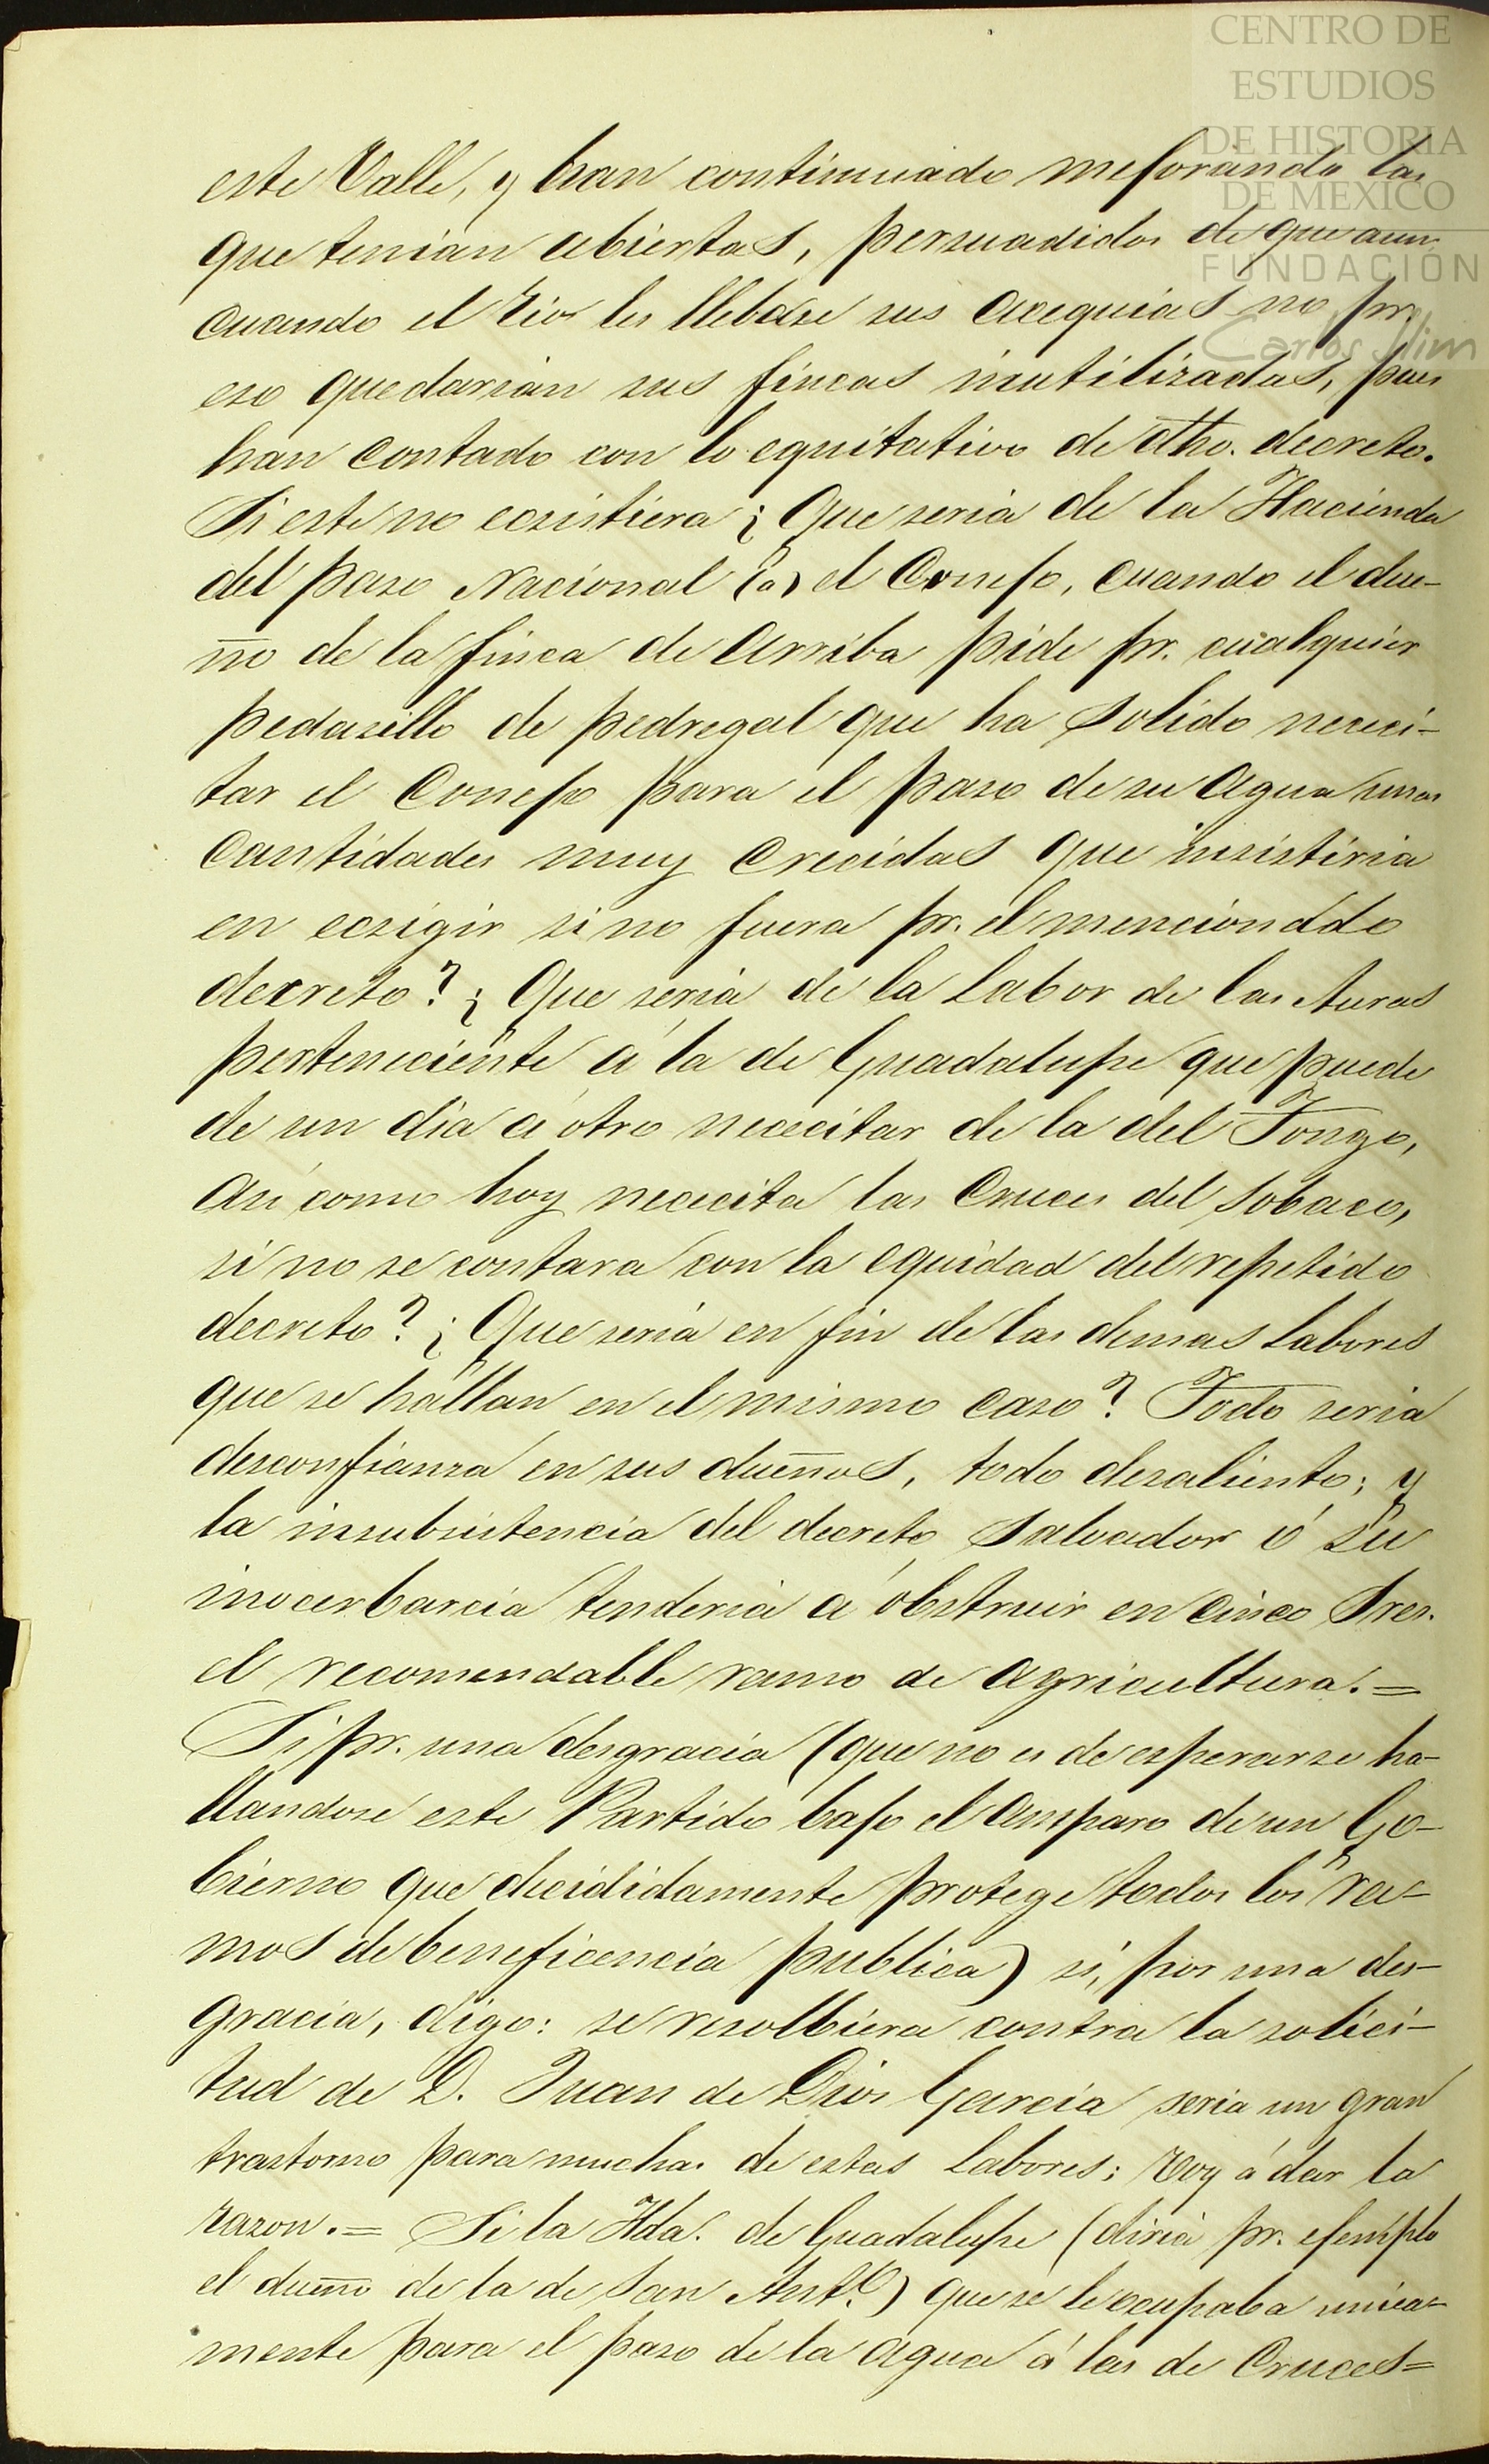 CENTRO DE
ESTUDIOS
DE HISTORIA
DE MEXICO
FUNDACIÓN
Carlos Slim
este Valle, y han continuado mejorando las
que tenian abiertas, persuadidos de que aun
cuando el rio les llebase sus acequias no pr.
eso quedarian sus fincas inutilizadas, pues
han contado con lo equitativo de dho. decreto.
Si este no ecsistiera ¿Que seria de la Hacienda
del paso Nacional (a) el Conejo, cuando el due-
ño de la finca de arriba pide pr. cualquier
pedasillo de pedregal que ha solido nececi-
tar el Conejo para el paso de su agua unas
cantidades muy crecidas que insistiria
en ecsigir si no fuera pr. el mencionado
decreto? ¿Que seria de la Labor de las Auras
perteneciente á la de Guadalupe que puede
de un dia á otro nececitar de la del Torreo,
asi como hoy nececita las Cruces del Sobaco,
si no se contara con la equidad del repetido
decreto? ¿Que seria en fin de las demas Labores
que se hallan en el mismo caso? Todo seria
desconfianza en sus dueños, todo desaliento; y
la insubsistencia del decreto Salvador ó su
inocerbarcia tenderia á obstruir en cinco Sres.
el recomendable ramo de agricultura.=
Si pr. una desgracia (que no es de esperarse ha-
llandose este Partido bajo el amparo de un Go-
bierno que decididamente protege todos los ra-
mos de beneficencia publica) si, por una des-
gracia, digo: se resolbiera contra la solici-
tud de D. Juan de Dios Garcia seria un gran
trastorno para muchas de estas Labores; voy á dar la
razon.= Si la Hda. de Guadalupe (diria pr. ejemplo
el dueño de la de San Anto.) que se le ocupaba unica-
mente para el paso de la agua á las de Cruces=